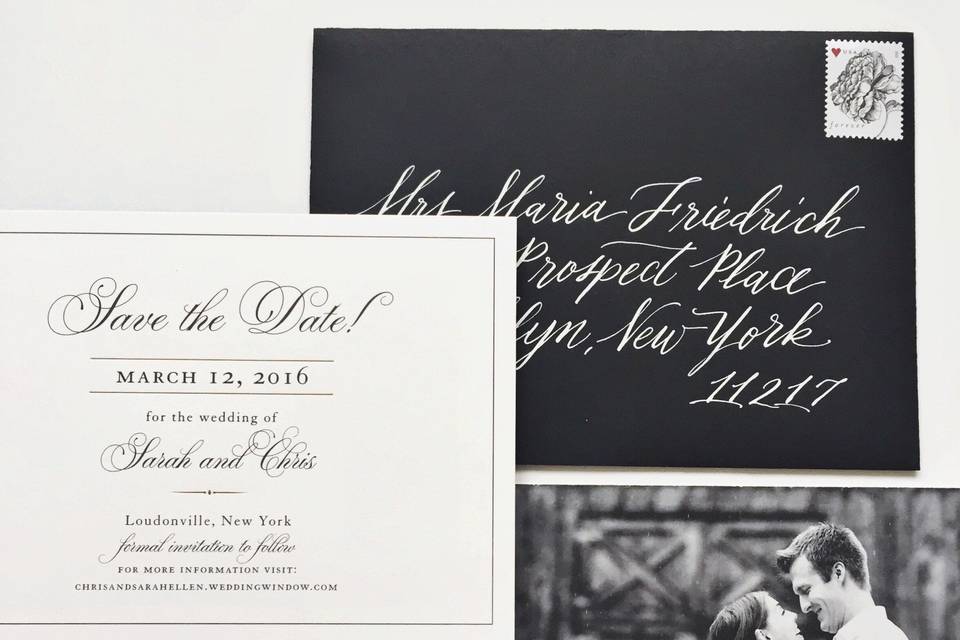 Save the Date!
MARCH 12, 2016
for the wedding of
Sarah and Chris
Loudonville, New York
formal invitation to follow
FOR MORE INFORMATION VISIT:
CHRISANDSARAHELLEN.WEDDINGWINDOW.COM
Mrs Maria Friedrich
Prospect Place
lyn, New York
11217
USA
forever